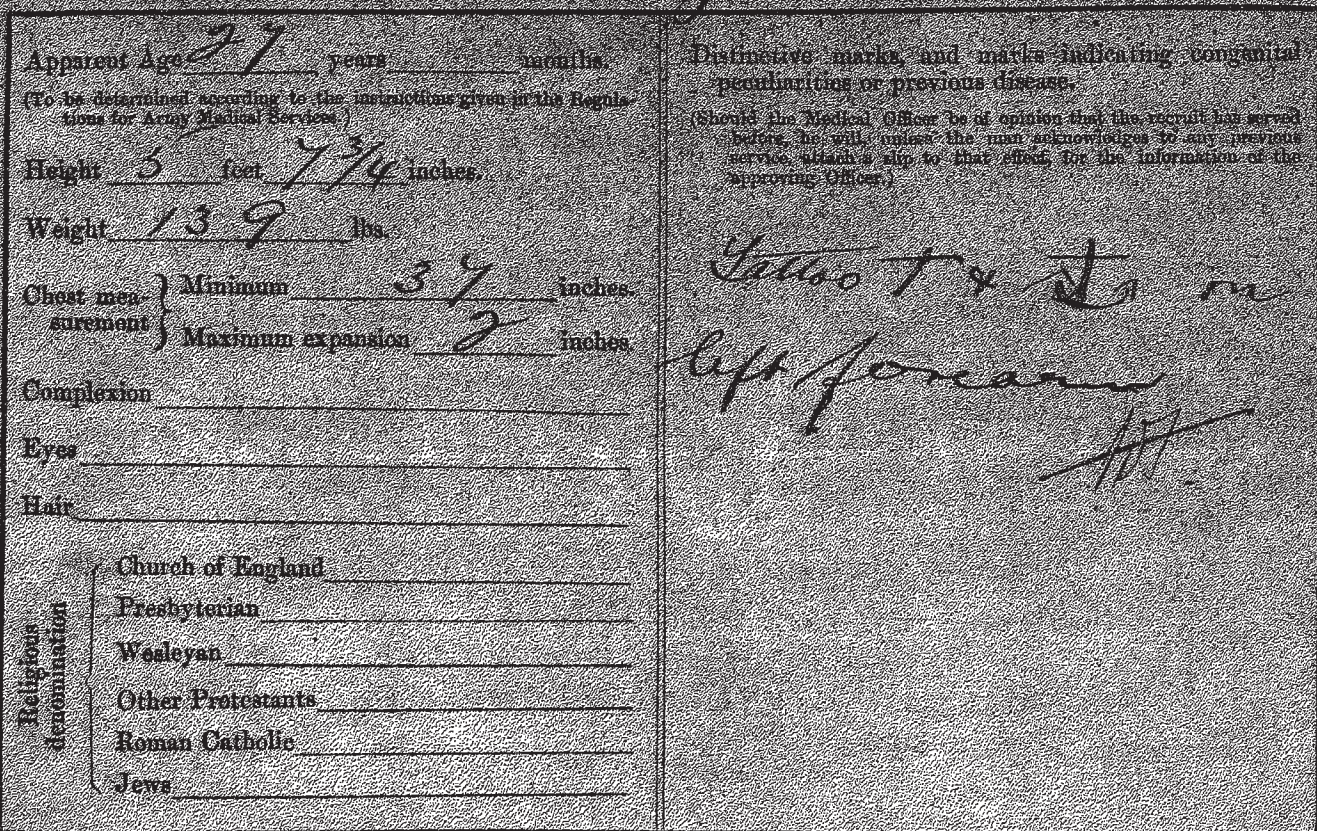 Apparent Age 27 years months.
(To be determined according to the instructions given in the Regula-
tions for Army Medical Services.)
Height 5 feet 7 3/4 inches.
Weight 139 lbs.
Chest mea-
surement
Minimum 37 inches.
Maximum expansion 2 inches
Complexion
Eyes
Hair
Religious
denomination
Church of England
Presbyterian
Wesleyan
Other Protestants
Roman Catholic
Jews
Distinctive marks, and marks indicating congenital
peculiarities or previous disease.
(Should the Medical Officer be of opinion that the recruit has served
before, he will, unless the man acknowledges to any previous
service, attach a slip to that effect, for the information of the
approving Officer.)
Tattoo T & on
left forearm